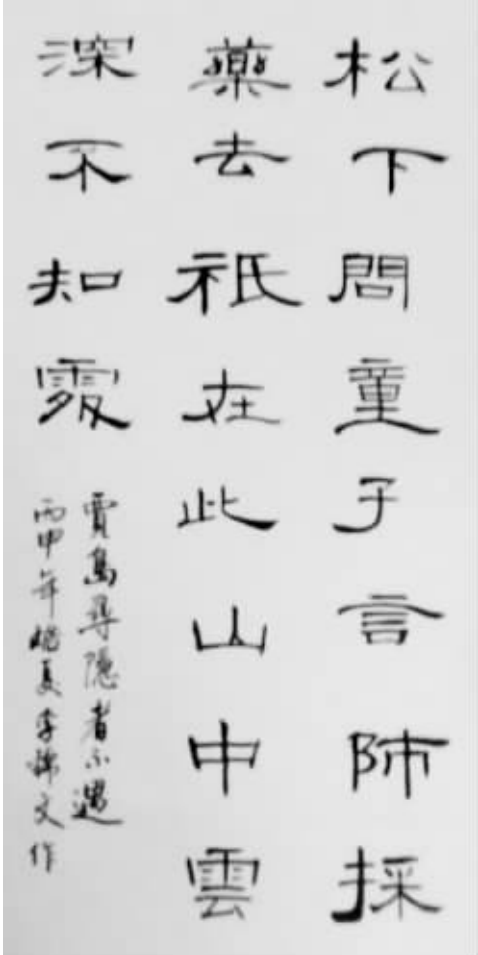 松下問童子言師採
藥去祇在此山中雲
深不知處
賈島尋隱者不遇
丙申年 夏李 文作